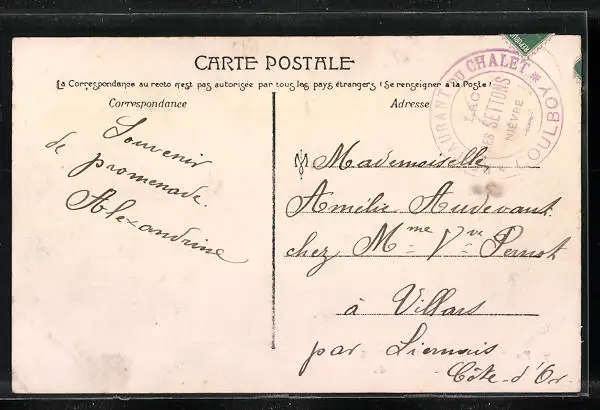 CARTE POSTALE
La Correspondance au recto n'est pas autorisée par tous les pays étrangers (Se renseigner à la Poste)
Correspondance
Adresse
Souvenir
de promenade.
Alexandrine
Mademoiselle
Amélie Audevant
chez Mme Vve Pernot
à Villars
par Liernais
Côte-d'Or
DU CHALET
LAC
DES SETTONS
NIÈVRE